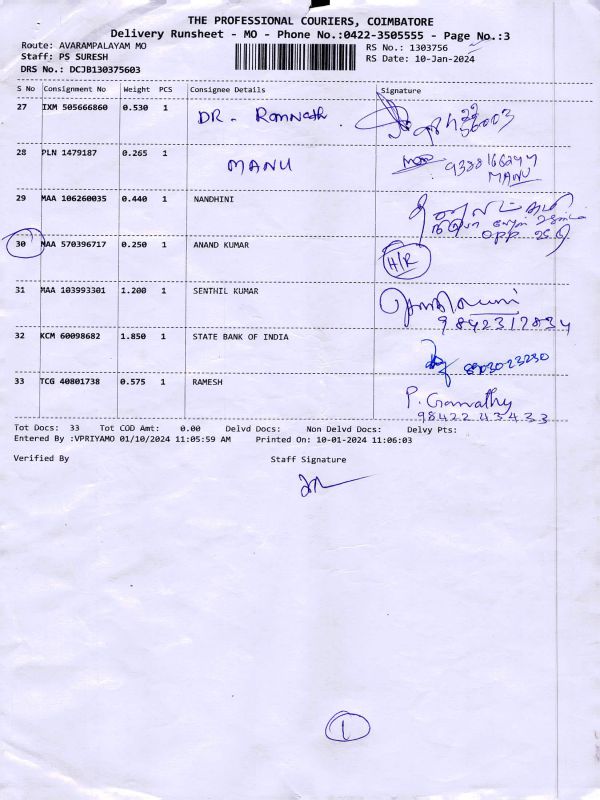 THE PROFESSIONAL COURIERS, COIMBATORE
Delivery Runsheet - MO - Phone No.:0422-3505555 - Page No.:3
Route: AVARAMPALAYAM MO RS No.: 1303756
Staff: PS SURESH RS Date: 10-Jan-2024
DRS No.: DCJB130375603
S No Consignment No Weight PCS Consignee Details Signature
27 IXM 505666860 0.530 1 DR - Ramnath
28 PLN 1479187 0.265 1 MANU 9388166247
MANU
29 MAA 106260035 0.440 1 NANDHINI
opp
30 MAA 570396717 0.250 1 ANAND KUMAR H/R
31 MAA 103993301 1.200 1 SENTHIL KUMAR
9842317834
32 KCM 60098682 1.850 1 STATE BANK OF INDIA
8903023230
33 TCG 40801738 0.575 1 RAMESH
P. Gomathy
98422 43433
Tot Docs: 33 Tot COD Amt: 0.00 Delvd Docs: Non Delvd Docs: Delvy Pts:
Entered By :VPRIYAMO 01/10/2024 11:05:59 AM Printed On: 10-01-2024 11:06:03
Verified By Staff Signature
1